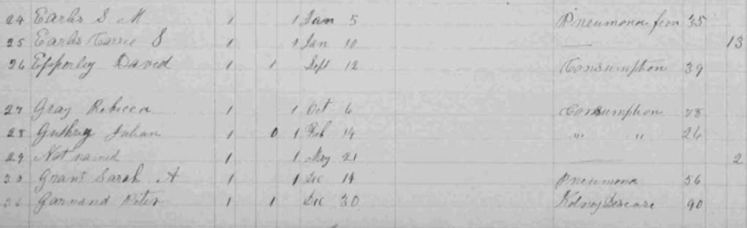 24 Earls S M 1 1 Jan 5 Pneumona fever 35
25 Earls Carrie S 1 1 Jan 10 — 13
26 Epperley David 1 1 Sept 12 Consumption 39
27 Gray Rebecca 1 1 Oct 6 Consumption 28
28 Julian 1 0 1 Feb 14 " " 26
29 Not named 1 1 May 21 — 2
Grant Sarah A 1 1 Dec 14 Pneumona 56
Peter 1 1 Dec 30 Kidney Disease 90